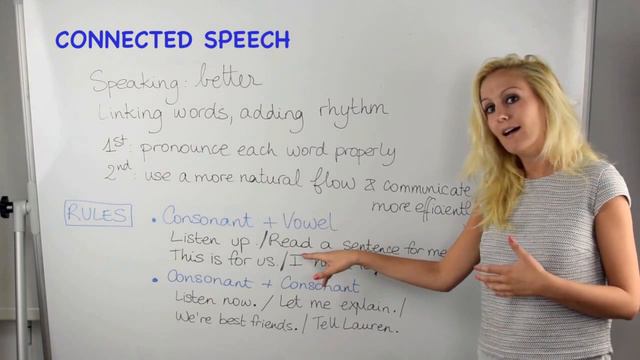 CONNECTED SPEECH
Speaking: better
Linking words, adding rhythm
1st: pronounce each word properly
2nd: use a more natural flow & communicate
more efficientl
RULES
• Consonant + Vowel
Listen up. / Read a sentence for me
This is for us. / I
• Consonant + Consonant
Listen now. / Let me explain. /
We're best friends. / Tell Lauren.